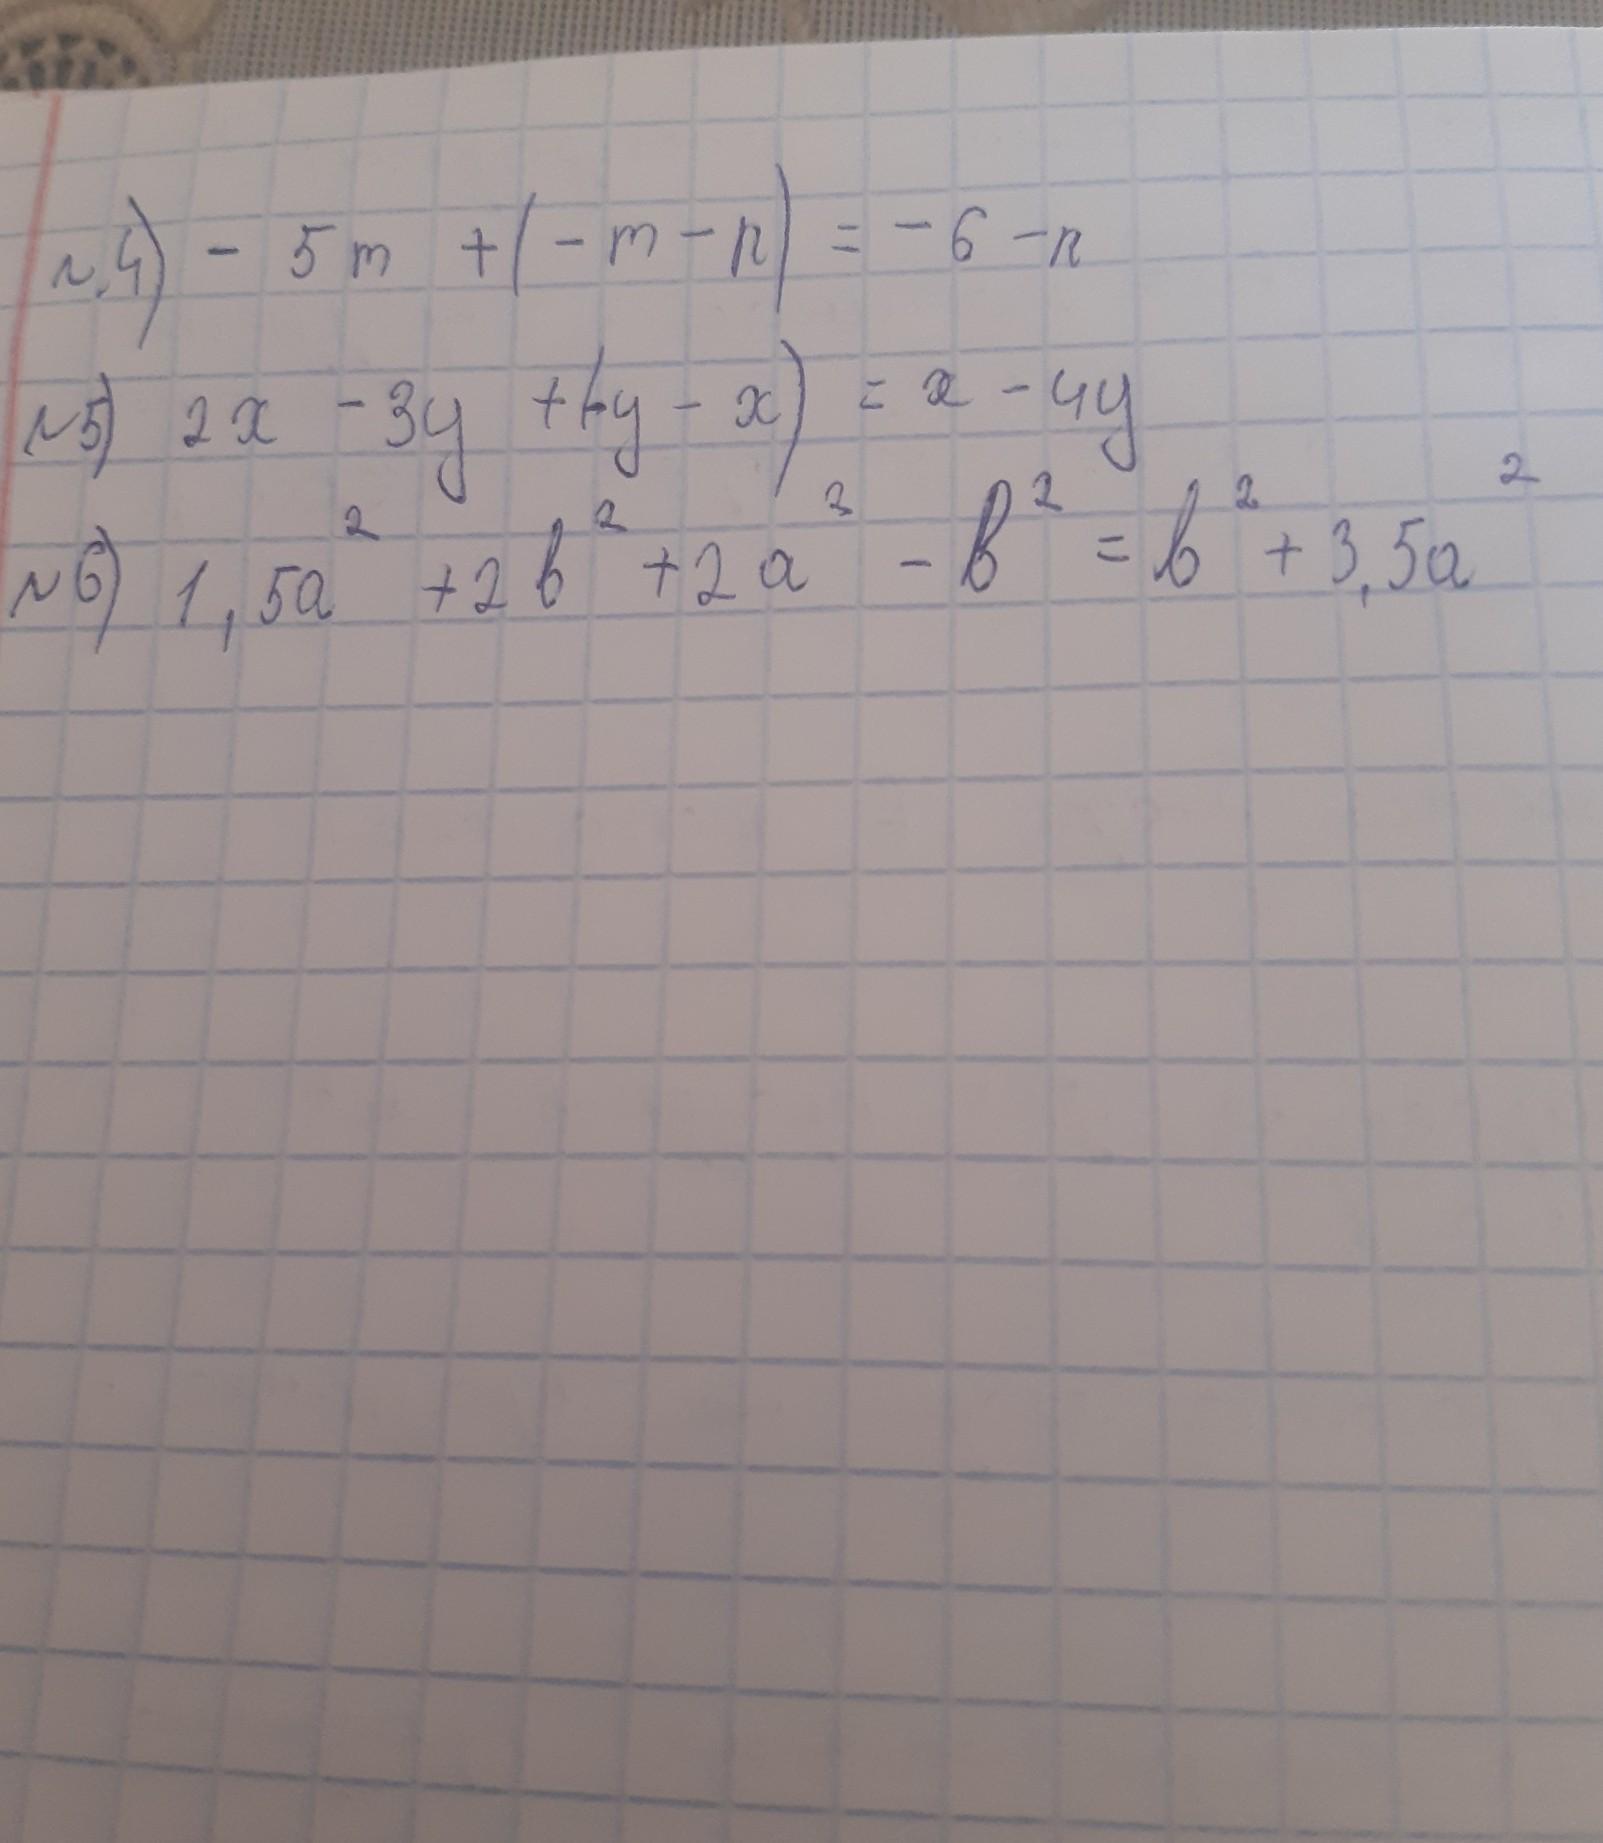 №4) - 5m + (- m - n) = - 6 - n
№5) 2x - 3y + (-y - x) = x - 4y
№6) 1,5a² + 2b² + 2a² - b² = b² + 3,5a²